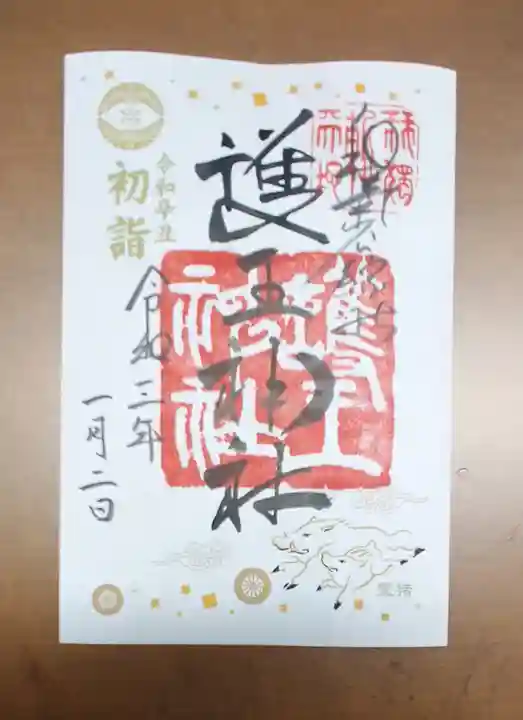 護王神社
護王
神社
令和辛丑
初詣
令和三年
一月二日
霊猪